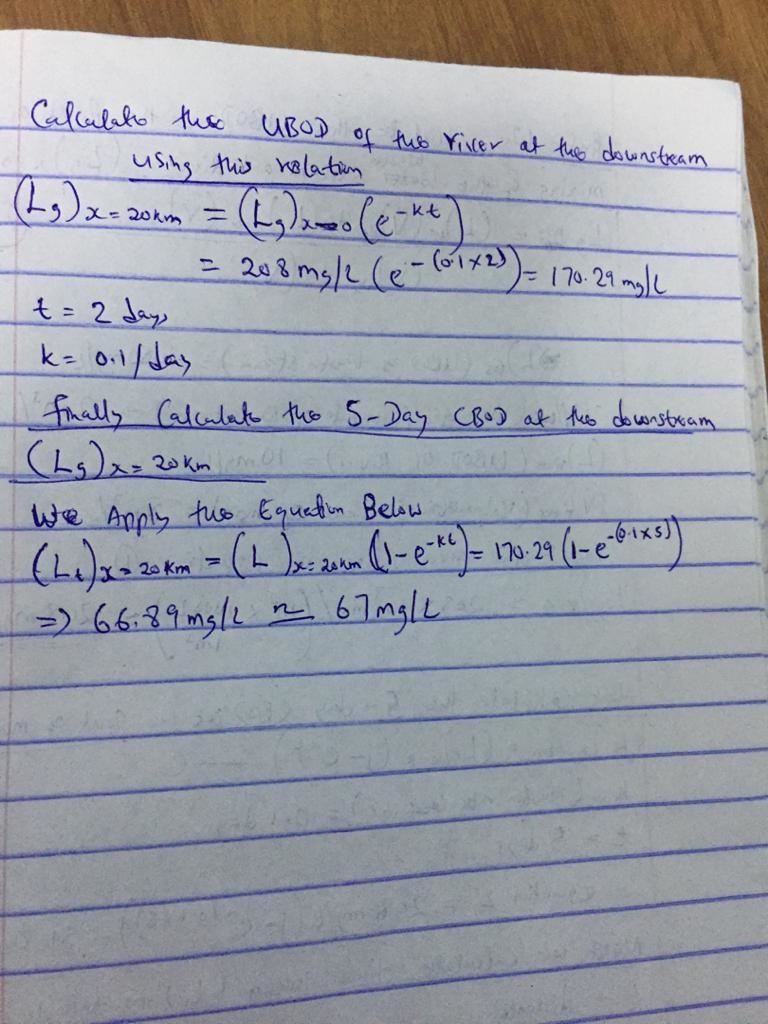 Calculate the UBOD of the river at the downstream
using this relation
(L₅)x=20km = (L₅)x=0 (e^-kt)
= 208mg/L (e^-(0.1×2)) = 170.29mg/L
t = 2 days
k = 0.1/day
finally Calculate the 5-Day CBOD at the downstream
(L₅)x=20km
We Apply the Equation Below
(Lt)x=20km = (L)x=20km (1-e^-kt) = 170.29 (1-e^-(0.1×5))
=> 66.89mg/L ≈ 67mg/L